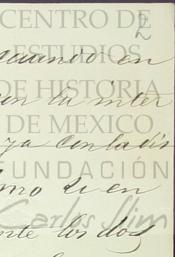 2
CENTRO DE
ESTUDIOS
cuando en
DE HISTORIA
con la inter
DE MEXICO
ya con la dis
FUNDACIÓN
en
Carlos Slim
nte los dos